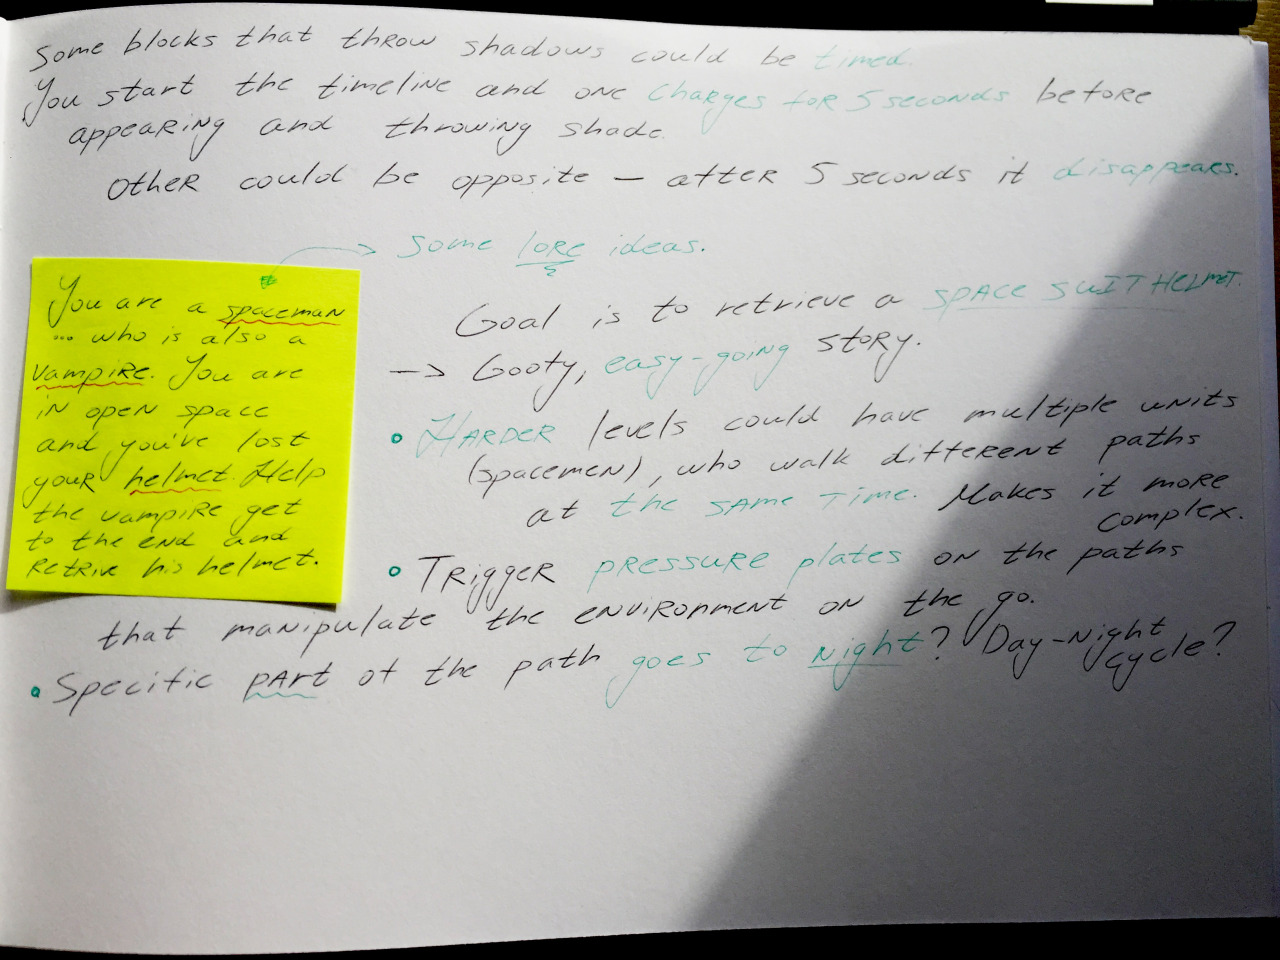 Some blocks that throw shadows could be timed.
You start the timeline and one charges for 5 seconds before
appearing and throwing shade.
Other could be opposite – after 5 seconds it disappears.
Some lore ideas.
You are a spaceman
... who is also a
vampire. You are
in open space
and you've lost
your helmet. Help
the vampire get
to the end and
retrive his helmet.
Goal is to retrieve a space suit helmet.
-> Goofy, easy-going story.
• Harder levels could have multiple units
(spacemen), who walk different paths
at the same time. Makes it more
complex.
• Trigger pressure plates on the paths
that manipulate the environment on the go.
• Specific part of the path goes to night? Day-night
cycle?